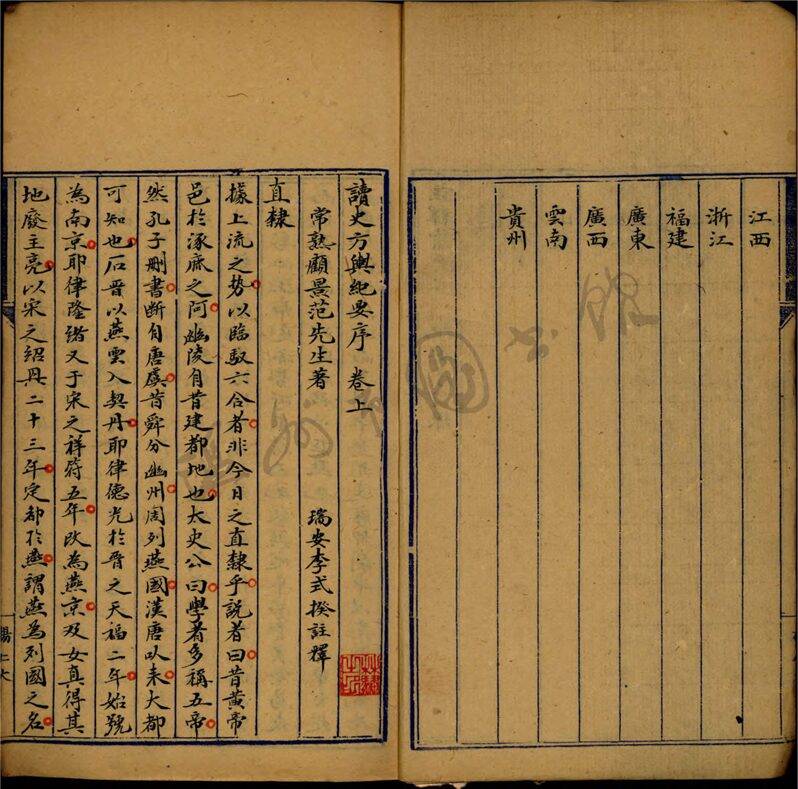 江西
浙江
福建
廣東
廣西
雲南
貴州
讀史方輿紀要序 卷上
常熟顧景范先生著 瑞安李式揆註釋
直隸
據上流之勢以臨馭六合者非今日之直隸乎説者曰昔黃帝
邑於涿鹿之阿幽陵自昔建都地也太史公曰學者多稱五帝
然孔子刪書断自唐虞昔舜分幽州周列燕國漢唐以来大都
可知也石晋以燕雲入契丹耶律德光於晋之天福二年始號
為南京耶律隆緒又于宋之祥符五年改為燕京及女真得其
地廢主亮以宋之紹興二十三年定都於燕謂燕為列國之名